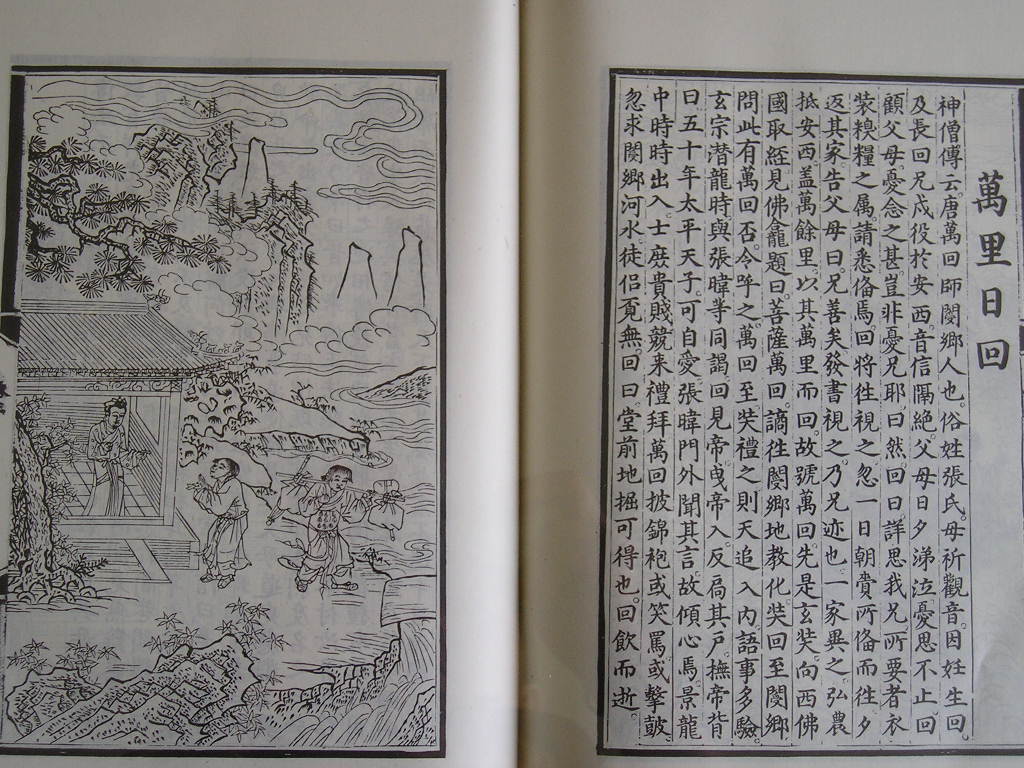 萬里日回
神僧傳云。唐萬回師閿鄉人也。俗姓張氏母祈觀音。因妊生回
及長回兄戍役於安西。音信隔絕。父母日夕涕泣憂思不止回
顧父母。憂念之甚。豈非憂兄耶。曰然。回曰詳思我兄所要者衣
裘糗糧之屬。請悉俻焉。回將徃視之。忽一日朝賫所俻而徃夕
返其家告父母曰。兄善矣。發書視之。乃兄迹也。一家異之弘農
抵安西。盖萬餘里。以其萬里而回。故號萬回。先是玄奘向西佛
國取經見佛龕題曰。菩薩萬回。謫徃閿鄉地教化奘回至閿鄉
問此有萬回否。令呼之。萬回至奘禮之則天追入內。語事多驗。
玄宗潛龍時。與張暐等同謁回見帝曳帝入反扃其戶。撫帝背
曰五十年太平天子。可自愛。張暐門外聞其言故傾心焉景龍
中時時出入。士庶貴賤競来禮拜。萬回披錦袍。或笑罵。或擊鼓
忽求閿鄉河水徒侶覓無。回曰堂前地掘可得也。回飲而逝。